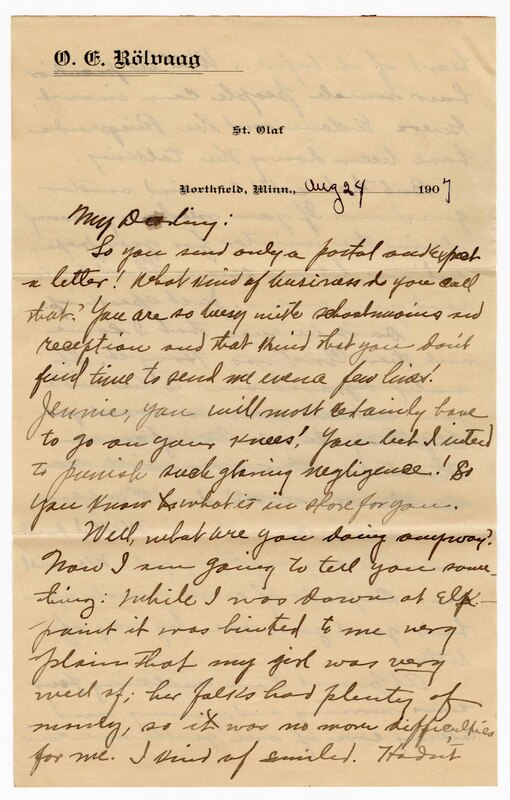 O. E. Rölvaag
St. Olaf
Northfield, Minn., Aug 24 1907
My Darling:
So you send only a postal and expect
a letter! What kind of business do you call
that? You are so busy with schoolmams and
reception and that kind that you don't
find time to send me even a few lines!
Jennie, you will most certainly have
to go on your knees! You bet I intend
to punish such glaring negligence! So
you know what is in store for you.
Well, what are you doing anyway?
Now I am going to tell you some-
thing: While I was down at Elk-
point it was hinted to me very
plain that my girl was very
well of; her folks had plenty of
money, so it was no more difficulties
for me. I kind of smiled. Hadn't